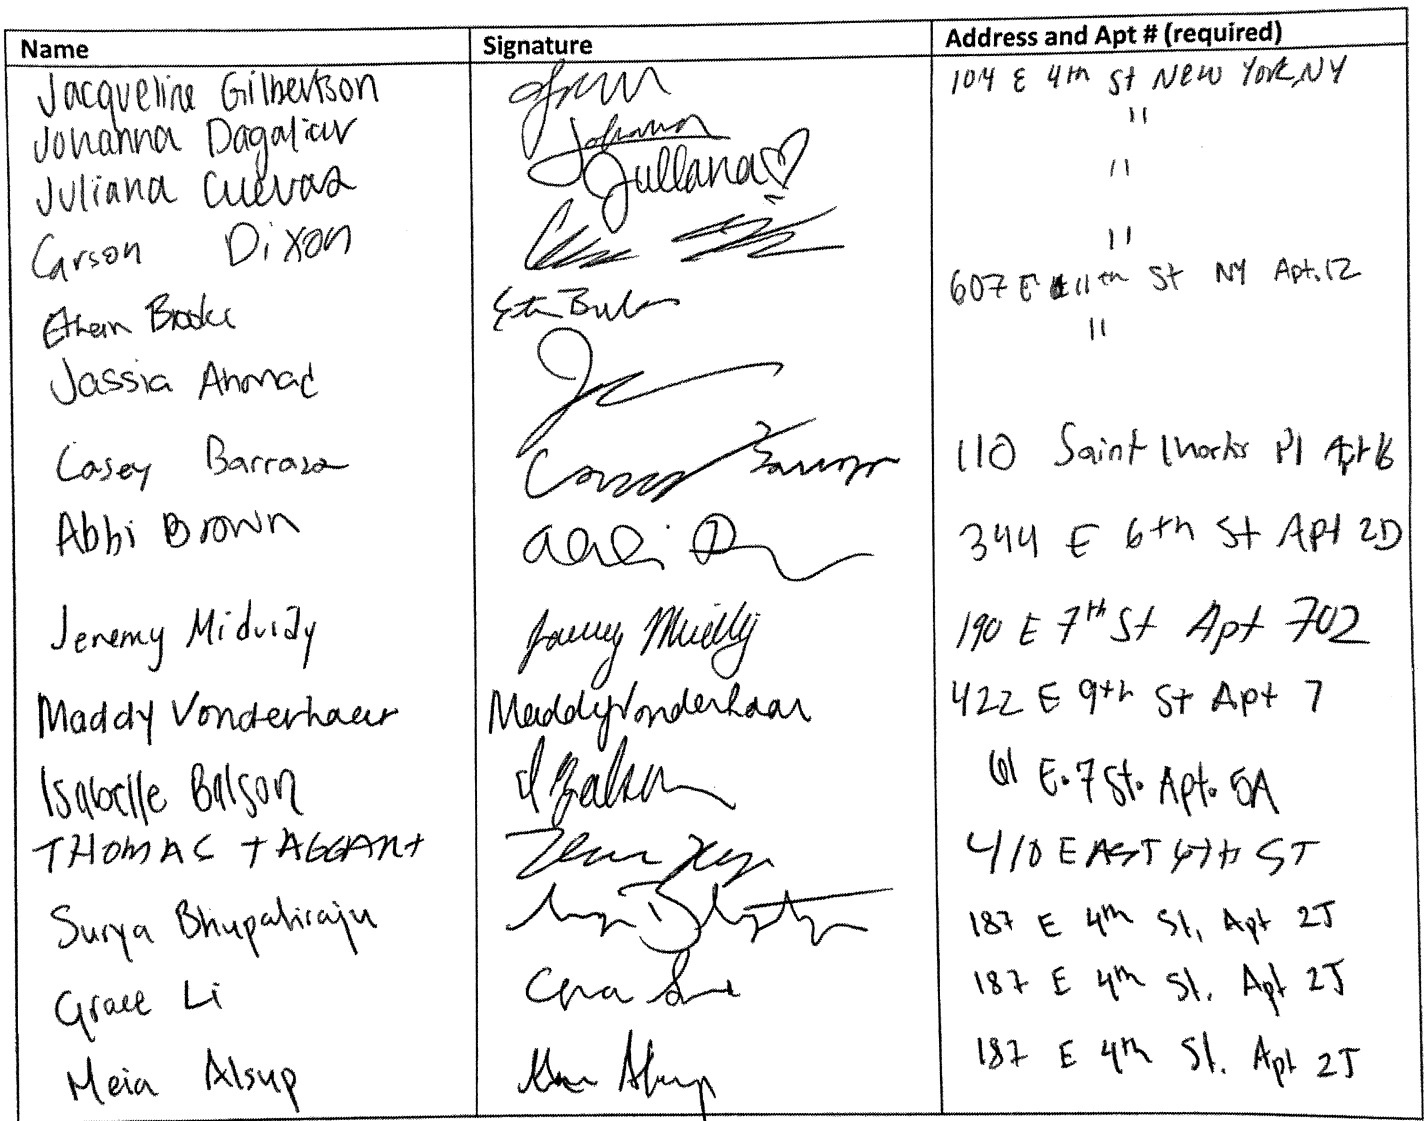 Name Signature Address and Apt # (required)
Jacqueline Gilbertson 104 E 4th St New York, NY
Johanna Dagaliar Johanna "
Juliana Cuevas Juliana♡ "
Carson Dixon "
Ethan Brooke 607 E 11th St NY Apt. 12
Jassia Ahmad "
Casey Barraza Casey Barraza 110 Saint Marks Pl Apt 16
Abbi Brown Abbi 344 E 6th St Apt 2D
Jeremy 190 E 7th St Apt 702
Maddy Vonderhaar Maddy Vonderhaar 422 E 9th St Apt 7
Isabelle Balson I Balson 61 E. 7 St. Apt. 5A
THOMAS TAGGART 410 EAST 6th ST
Surya Bhupatiraju 187 E 4th St, Apt 2J
Grace Li 187 E 4th St. Apt 2J
Meia Alsup 187 E 4th St. Apt 2J